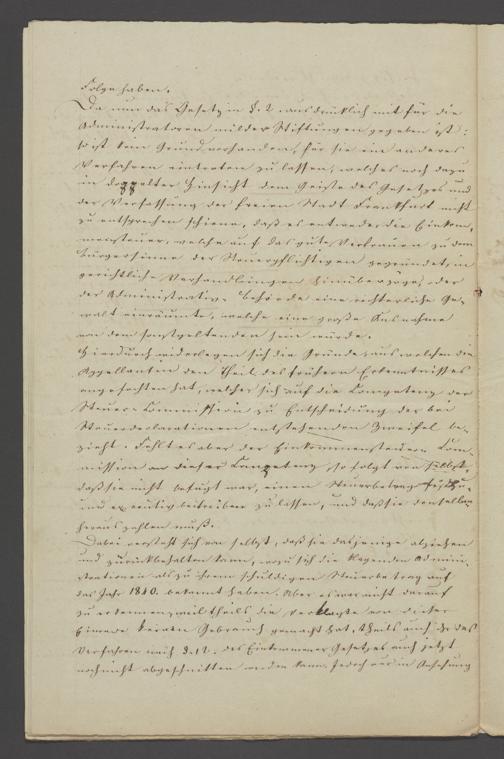 Folge haben.
Da nun das Gesetz in §. 2 ausdrücklich mit für die
Administratoren milder Stiftungen gegeben ist:
so ist kein Grund vorhanden, für sie ein anderes
Verfahren eintreten zu lassen, welches noch dazu
in doppelter Hinsicht dem Geiste des Gesetzes und
der Verfassung der freien Stadt Frankfurt nicht
zu entsprechen schiene, daß es entweder die Einkom¬
mensteuer, welche auf das gute Vertrauen zu dem
Bürgersinne der Steuerpflichtigen gegründet, in
gerichtliche Verhandlungen hinüberzöge, oder
der Administrativ-Behörde eine richterliche Ge¬
walt einräumte, welche eine große Ausnahme
von dem sonst geltenden sein würde.
Hierdurch widerlegen sich die Gründe, aus welchen die
Appellantin den Theil des frühern Erkenntnisses
angefochten hat, welcher sich auf die Competenz der
Steuer-Commission zu Entscheidung der bei
Steuerdeclarationen entstehenden Zweifel be¬
zieht. Fehlt es aber der Einkommensteuer Com¬
mission an dieser Competenz, so folgt von selbst,
daß sie nicht befugt war, einen Steuerbetrag
und executiv beitreiben zu lassen, und daß sie denselben
herauszahlen muß.
Dabei versteht sich von selbst, daß sie dasjenige abziehen
und zurückbehalten kann, wozu sich die klagenden Admini¬
stratoren als zu ihrem schuldigen Steuerbetrag auf
das Jahr 1840. bekannt haben. Aber es war nicht darauf
zu erkennen, weil theils die Verklagte von dieser
Einrede keinen Gebrauch gemacht hat, theils auch ihr das
Verfahren nach §. 12. des Gesetzes auch jetzt
noch nicht abgeschnitten werden kann. Jedoch nur in Ansehung